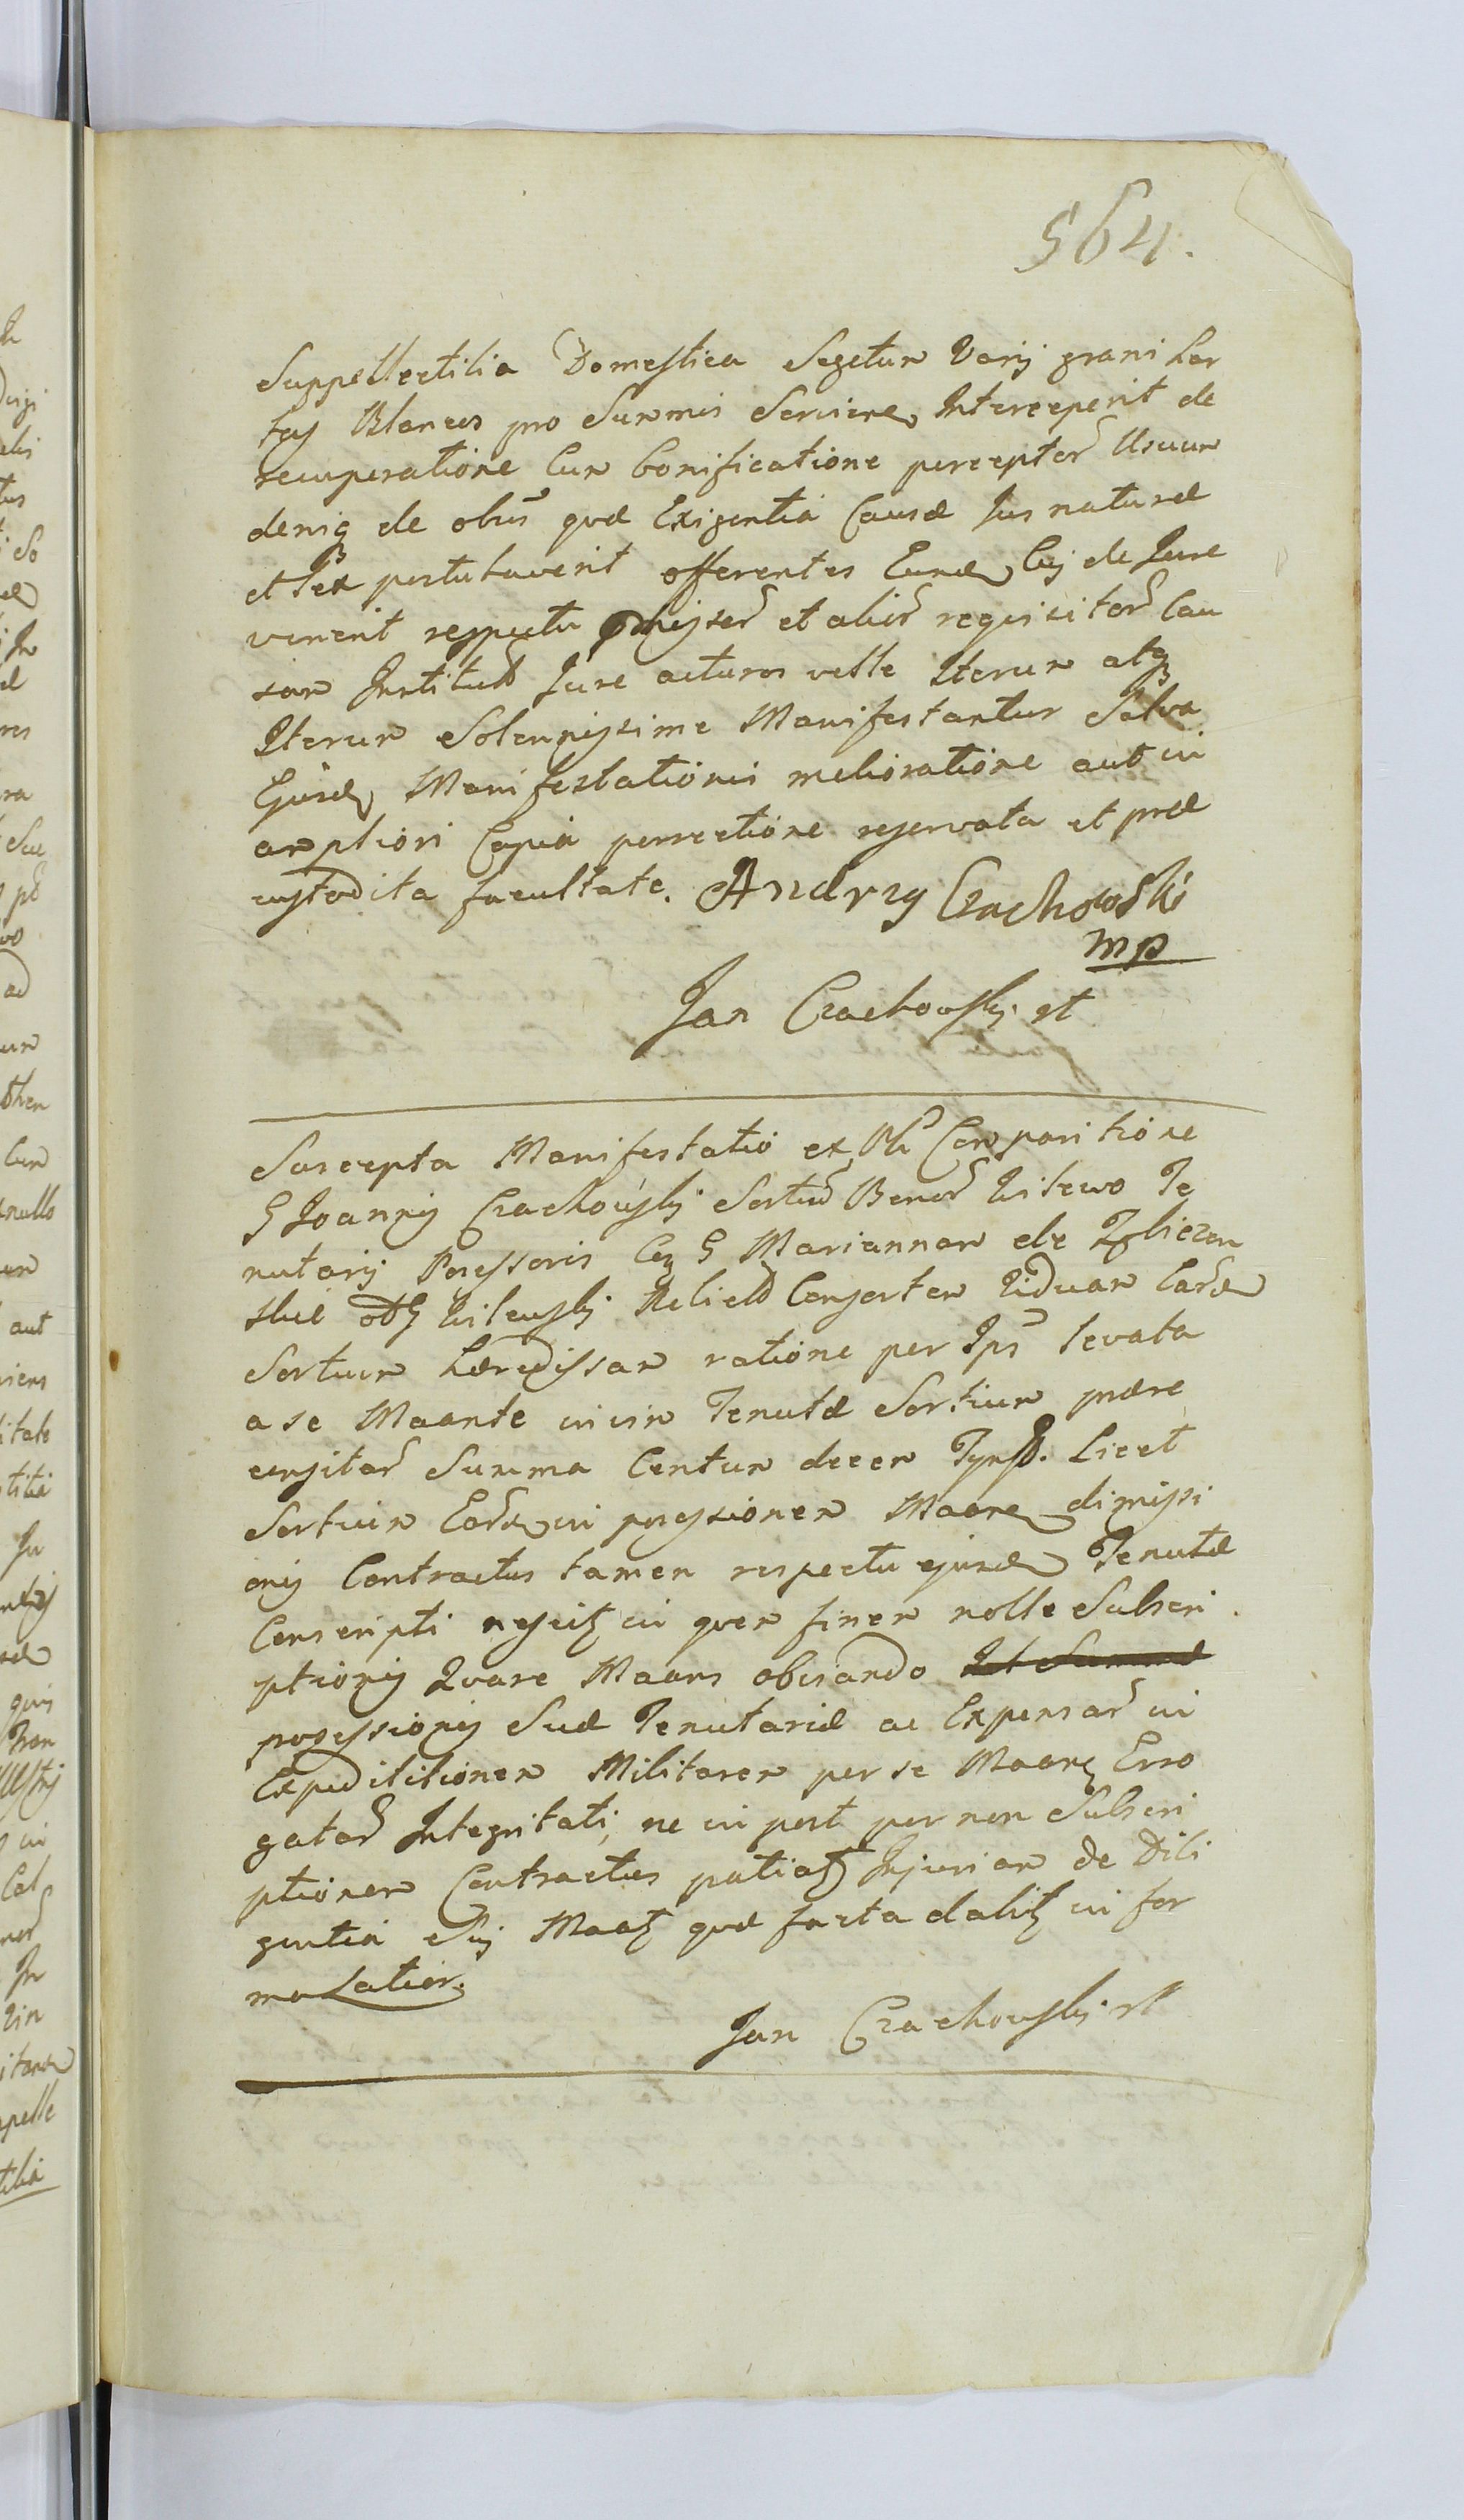 564.
Suppellectilia Domestica Segetum Varij grani Hor
tos Blancos pro Summis Servire Interceperit de
recuperatione Cum bonificatione perceptor Usuum
deniq de obus quæ Exigentia Causæ Jus naturæ
et Lex postulaverit offerentes Eund Cuj de Jure
venerit respectu præmissor et alior requisitor Cau
sam Institut Jure acturos velle Iterum atq
Iterum Solennissime Manifestantur Salva
Ejusd Manifestationis melioratione aut in
ampliori Copia porrectione reservata et præ
custodita facultate. Andrzy Czachowski
mp
Jan Czachowski et
Suscepta Manifestatio ex Obl Comparitione
G Joannis Czachowski Sortium Bonor Witewo Te
nutarij Possessoris Cog G Mariannam de
slue Witewski Relict Consortem Viduam Eard
Sortium Hæredissam ratione per Ips levata
a se Maante in vim Tenutæ Sortium prære
censitar Summa Centum decem Tynff. Licet
Sortium Eard in possessionem Maane dimissi
onis Contractus tamen respectu ejusd Tenutæ
Conscripti nescit in quem finem nolle Subscri
ptionis Quare Maans obviando Et Summæ
possessionis Suæ Tenutariæ ac Expensar in
Expedititionem Militarem per se Maane Erro
gatar Integritati, ne in post per non Subscri
ptionem Contractus patiat Injuriam de Dili
gentia Suj Maat quæ facta dabit in for
ma Latior.
Jan Czachowski et